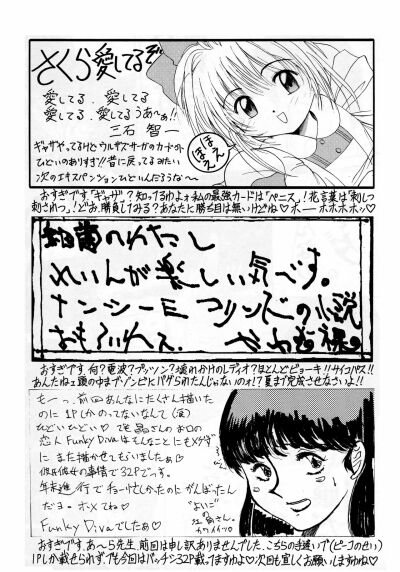 さくら愛してるぞ
愛してる、愛してる
愛してる、愛してるうあ〜ぁ!!
三石 智一
ギャザやってるけどウルザズサーガのカードの
ひどいのありすぎ!!昔に戻ってるみたい
次のエキスパンションひどいんだろうな〜
ほえ
ほえ
おすぎです。「ギャザ」?知ってるわよォ私の最強カードは「ペニス」!花言葉は「刺しつ
刺されつ」!どお、勝負してみる?あなたに勝ち目は無いけどね♡ホーーホホホホッ♡
のわたし
れいんが楽しい気です。
ナンシーE コリンズの小説
おもろいねえ
おすぎです。何?電波?プッツン?壊れかけのレディオ?ほとんどビョーキ!!サイコパス!!
あんたねェ頭の中までゾンビにバゲられたんじゃないのォ!?夏まで完成させなさいよ!!
もーっ、前回あんなにたくさん描いた
のに1Pしかのってないなんて(泣)
ひどいひどい♡でも晶さんのお口の
恋人Funky Divaはそんなことにもメゲず
にまた描かせてもらいましたぁ♡
彼氏彼女の事情で32Pでっす。
年末進行でチョー忙しかったのにがんばったん
だョ。ホメてね♡
Funky Divaでしたぁ♡
よいこの
おすぎです。あ〜ら先生、前回は申し訳ありませんでした、こちらの手違いで(ピーコのせい)
1Pしか載せられず、でも今回はバッチシ32P載ってますわよ♡次回も宜しくお願いしますわね♡